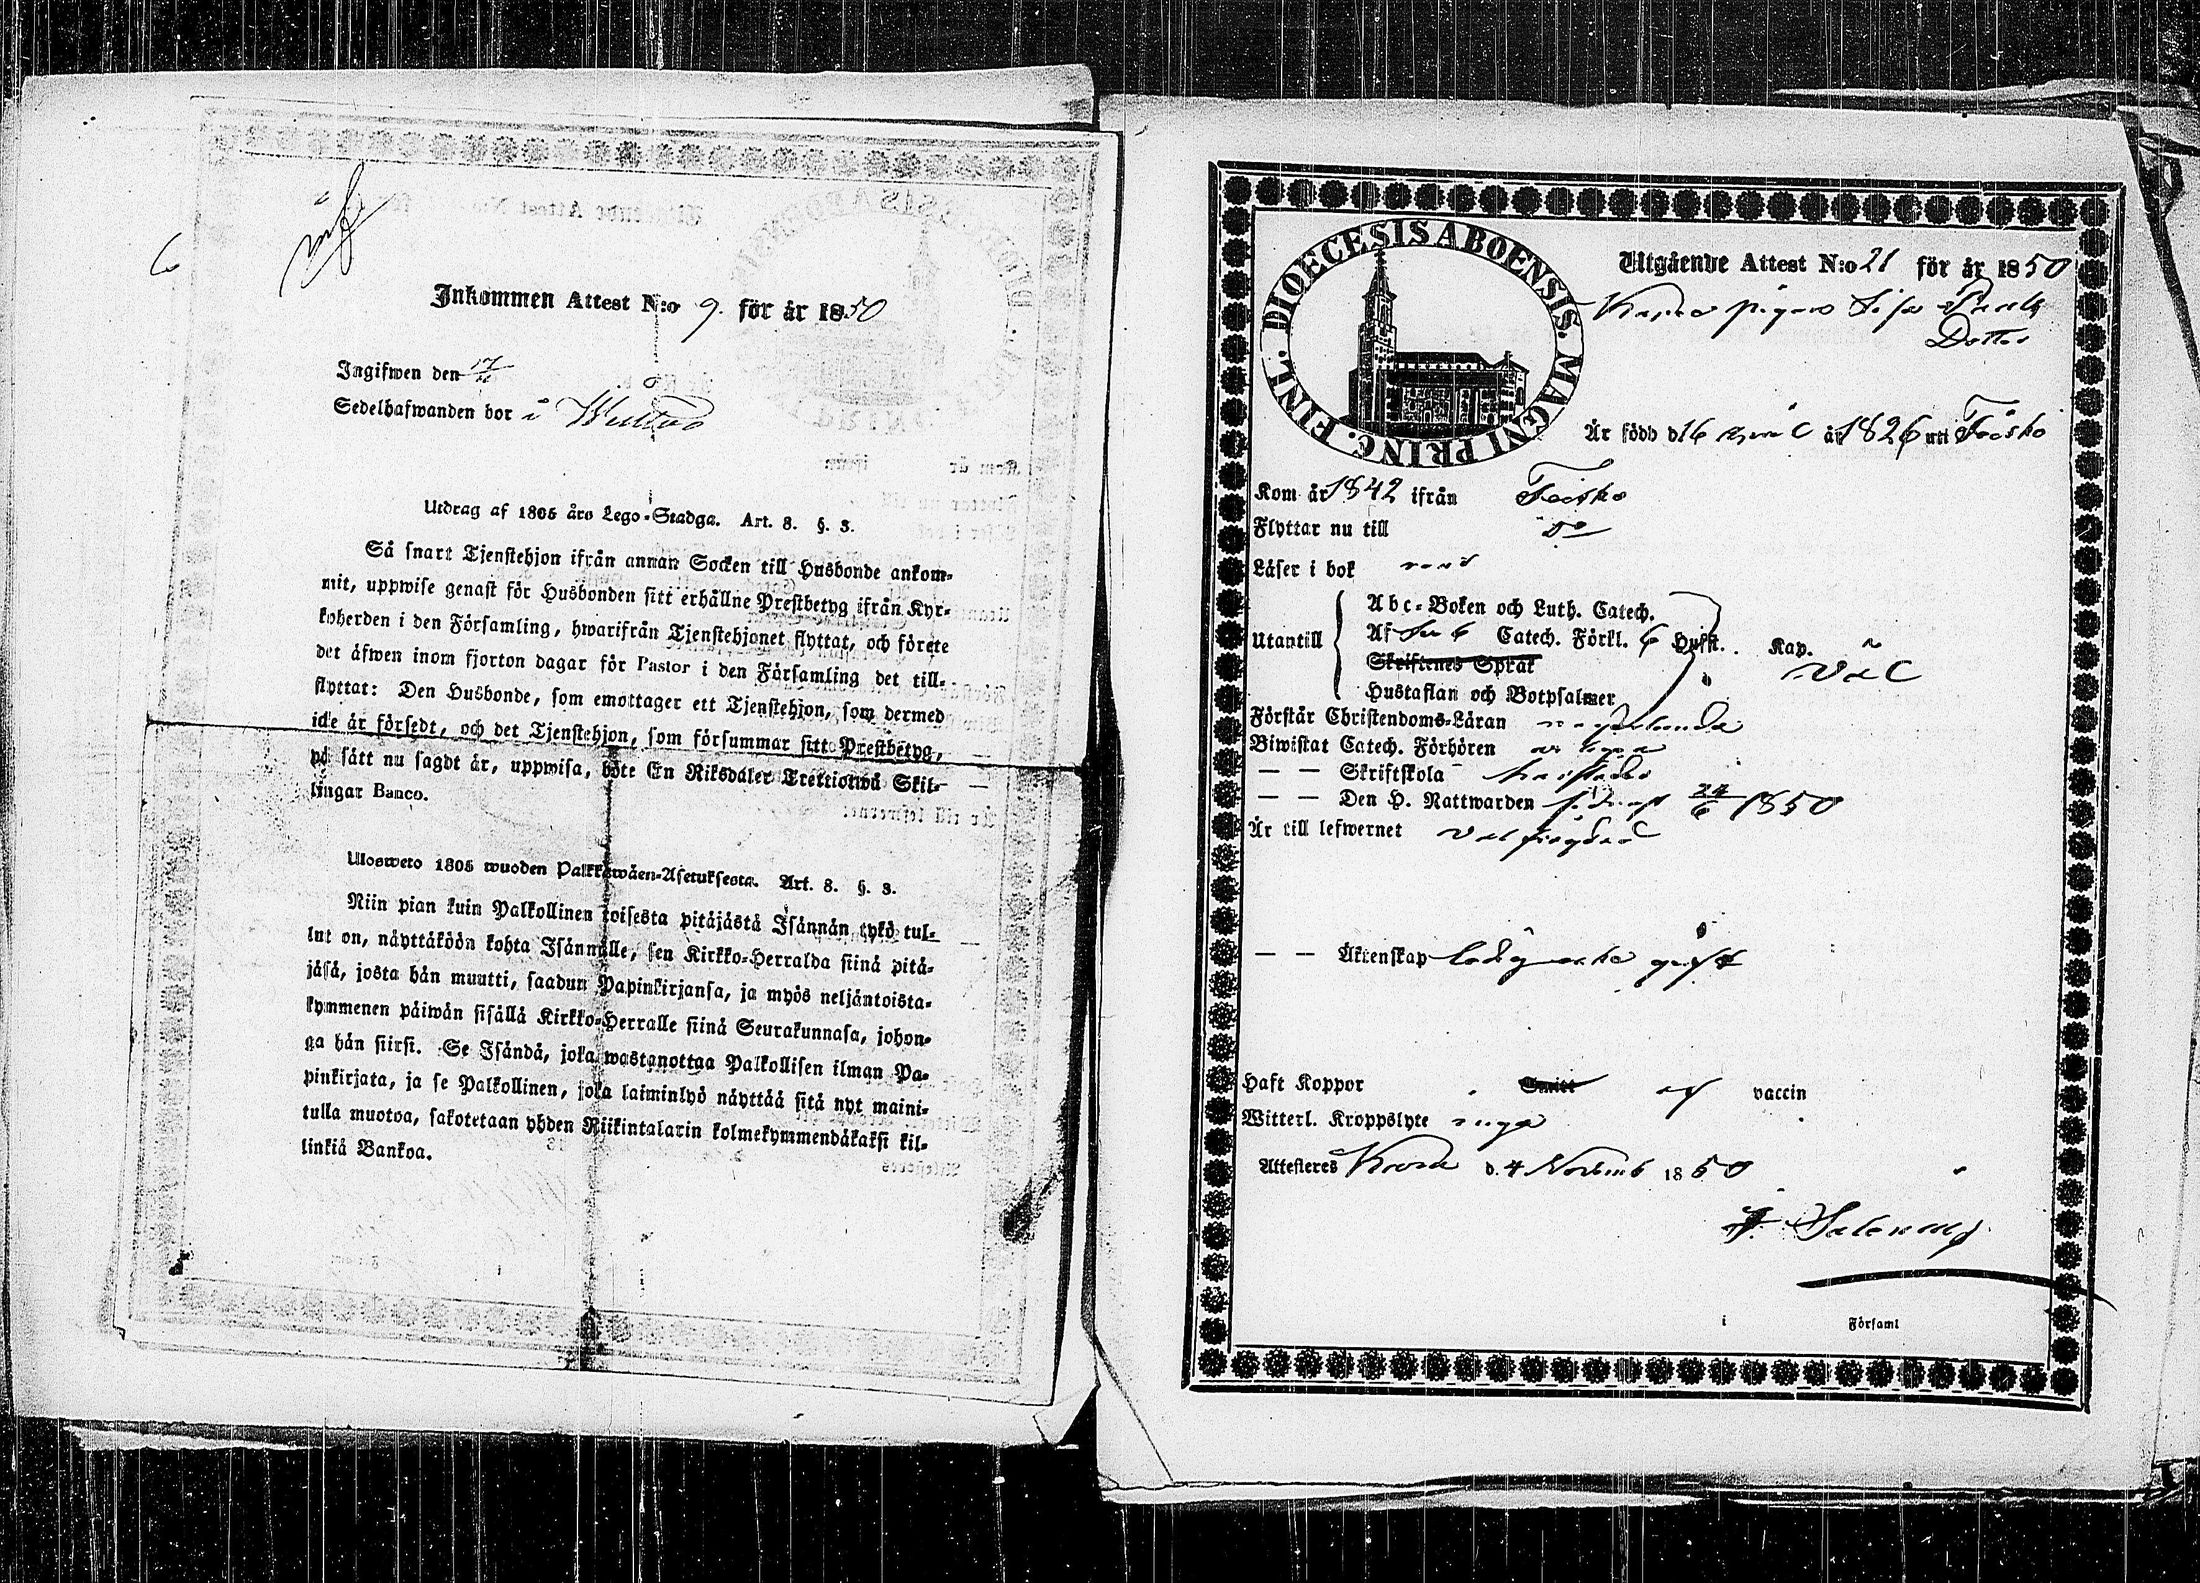 6
Inkommen Attest N:o 9. för år 1850
Ingifwen den 17/11
Sedelhafwanden bor i
Utdrag af 1805 års Lego-Stadga. Art. 8. §. 3.
Så snart Tjenstehjon ifrån annan Socken till Husbonde ankom-
mit, uppwise genast för Husbonden sitt erhållne Prestbetyg ifrån Kyr-
koherden i den Församling, hwarifrån Tjenstehjonet flyttat, och förete
det äfwen inom fjorton dagar för Pastor i den Församling det till-
flyttat: Den Husbonde, som emottager ett Tjenstehjon, som dermed
icke är försedt, och det Tjenstehjon, som försummar sitt Prestbetyg,
på sätt nu sagdt är, uppwisa, böte En Riksdaler Trettiotwå Skil-
lingar Banco.
Ulosweto 1805 wuoden Palkkawäen-Asetuksesta. Art. 8. §. 3.
Niin pian kuin Palkollinen toisesta pitäjästä Isännän tykö tul-
lut on, näyttäköön kohta Isännälle, sen Kirkko-Herralda siinä pitä-
jäsä, josta hän muutti, saadun Papinkirjansa, ja myös neljäntoista-
kymmenen päiwän sisällä Kirkko-Herralle siinä Seurakunnasa, johon-
ga hän siirsi. Se Isändä, joka wastanottaa Palkollisen ilman Pa-
pinkirjata, ja se Palkollinen, joka laiminlyö näyttää sitä nyt maini-
tulla muotoa, sakotetaan yhden Riikintalarin kolmekymmendäkaksi kil-
linkiä Bankoa.
DIOECESIS ABOENSIS. MAGNI PRINC. FINL.
Utgående Attest N:o 21 för år 1850
pigan Lisa
Dotter
Är född d. 16 år 1826 uti Teisko
Kom år 1842 ifrån Teisko
Flyttar nu till Do
Läser i bok
Utantill
Abc-Boken och Luth. Catech.
Af Catech. Förkl. 6 Hufst. Kap.
Skriftenes Språk
väl
Hustaflan och Botpsalmer
Förstår Christendoms-Läran
Biwistat Catech. Förhören
— — Skriftskola
— — Den H. Nattwarden sednast 24/6 1850
Är till lefwernet välfrägdad
— — Äktenskap ledig gift
Haft Koppor af vaccin
Witterl. Kroppslyte inga
Attesteras d. 4 Novemb 1850
i Församl